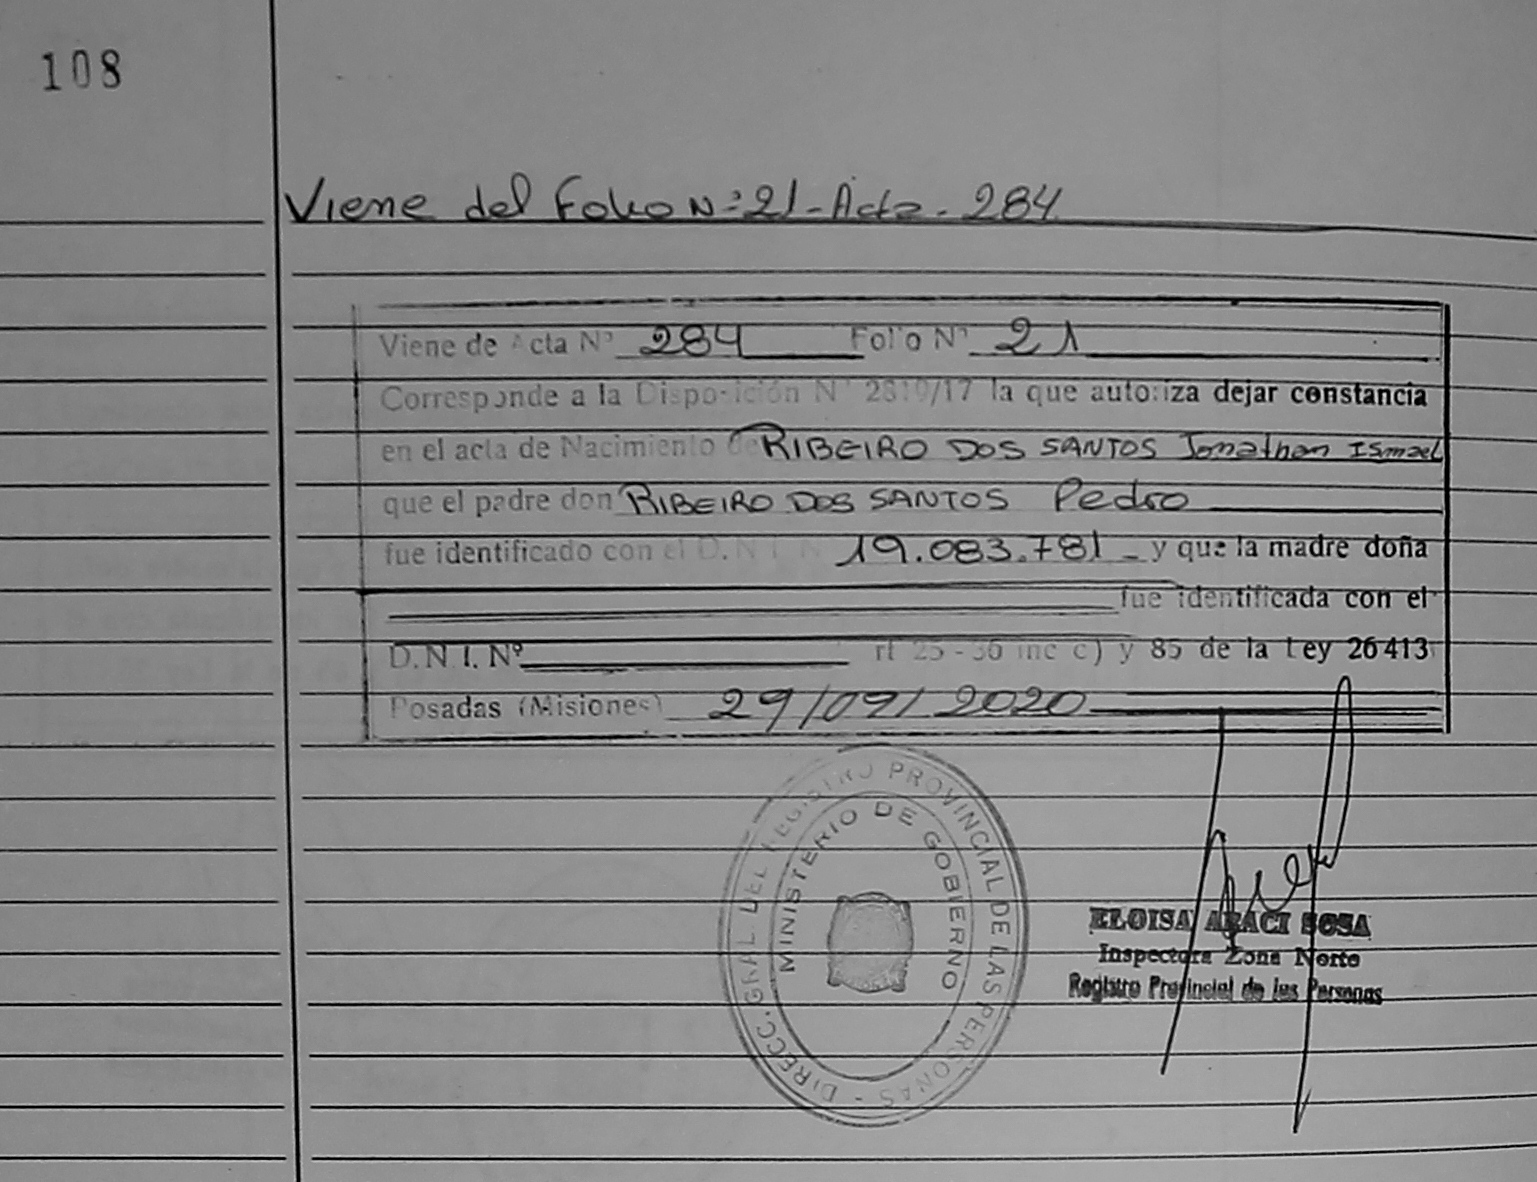 108
Viene del Folio Nº 21 - Acta - 284
Viene de Acta Nº 284 Folio Nº 21
Corresponde a la Disposición Nº 2819/17 la que autoriza dejar constancia
en el acta de Nacimiento de RIBEIRO DOS SANTOS Jonathan Ismael
que el padre don RIBEIRO DOS SANTOS Pedro
fue identificado con el D.N.I. Nº 19.083.781 - y que la madre doña
fue identificada con el
D.N.I. Nº rt 25 - 36 inc c) y 85 de la Ley 26413
Posadas (Misiones) 29/09/2020
DIRECC. GRAL DEL REGISTRO PROVINCIAL DE LAS PERSONAS -
MINISTERIO DE GOBIERNO
ELOISA ARACI SOSA
Inspectora Zona Norte
Registro Provincial de las Personas